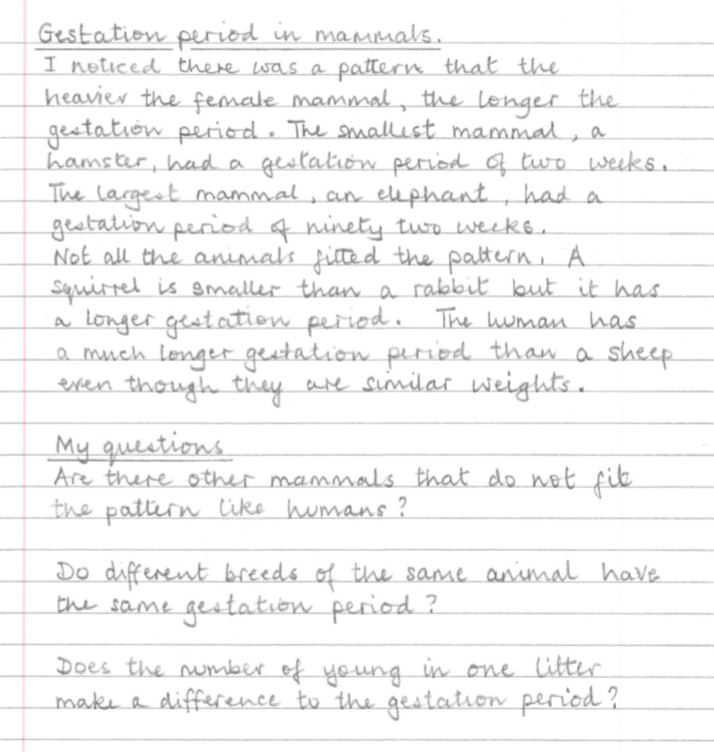 Gestation period in mammals.
I noticed there was a pattern that the
heavier the female mammal, the longer the
gestation period. The smallest mammal, a
hamster, had a gestation period of two weeks.
The largest mammal, an elephant, had a
gestation period of ninety two weeks.
Not all the animals fitted the pattern. A
squirrel is smaller than a rabbit but it has
a longer gestation period. The human has
a much longer gestation period than a sheep
even though they are similar weights.
My questions
Are there other mammals that do not fit
the pattern like humans?
Do different breeds of the same animal have
the same gestation period?
Does the number of young in one litter
make a difference to the gestation period?